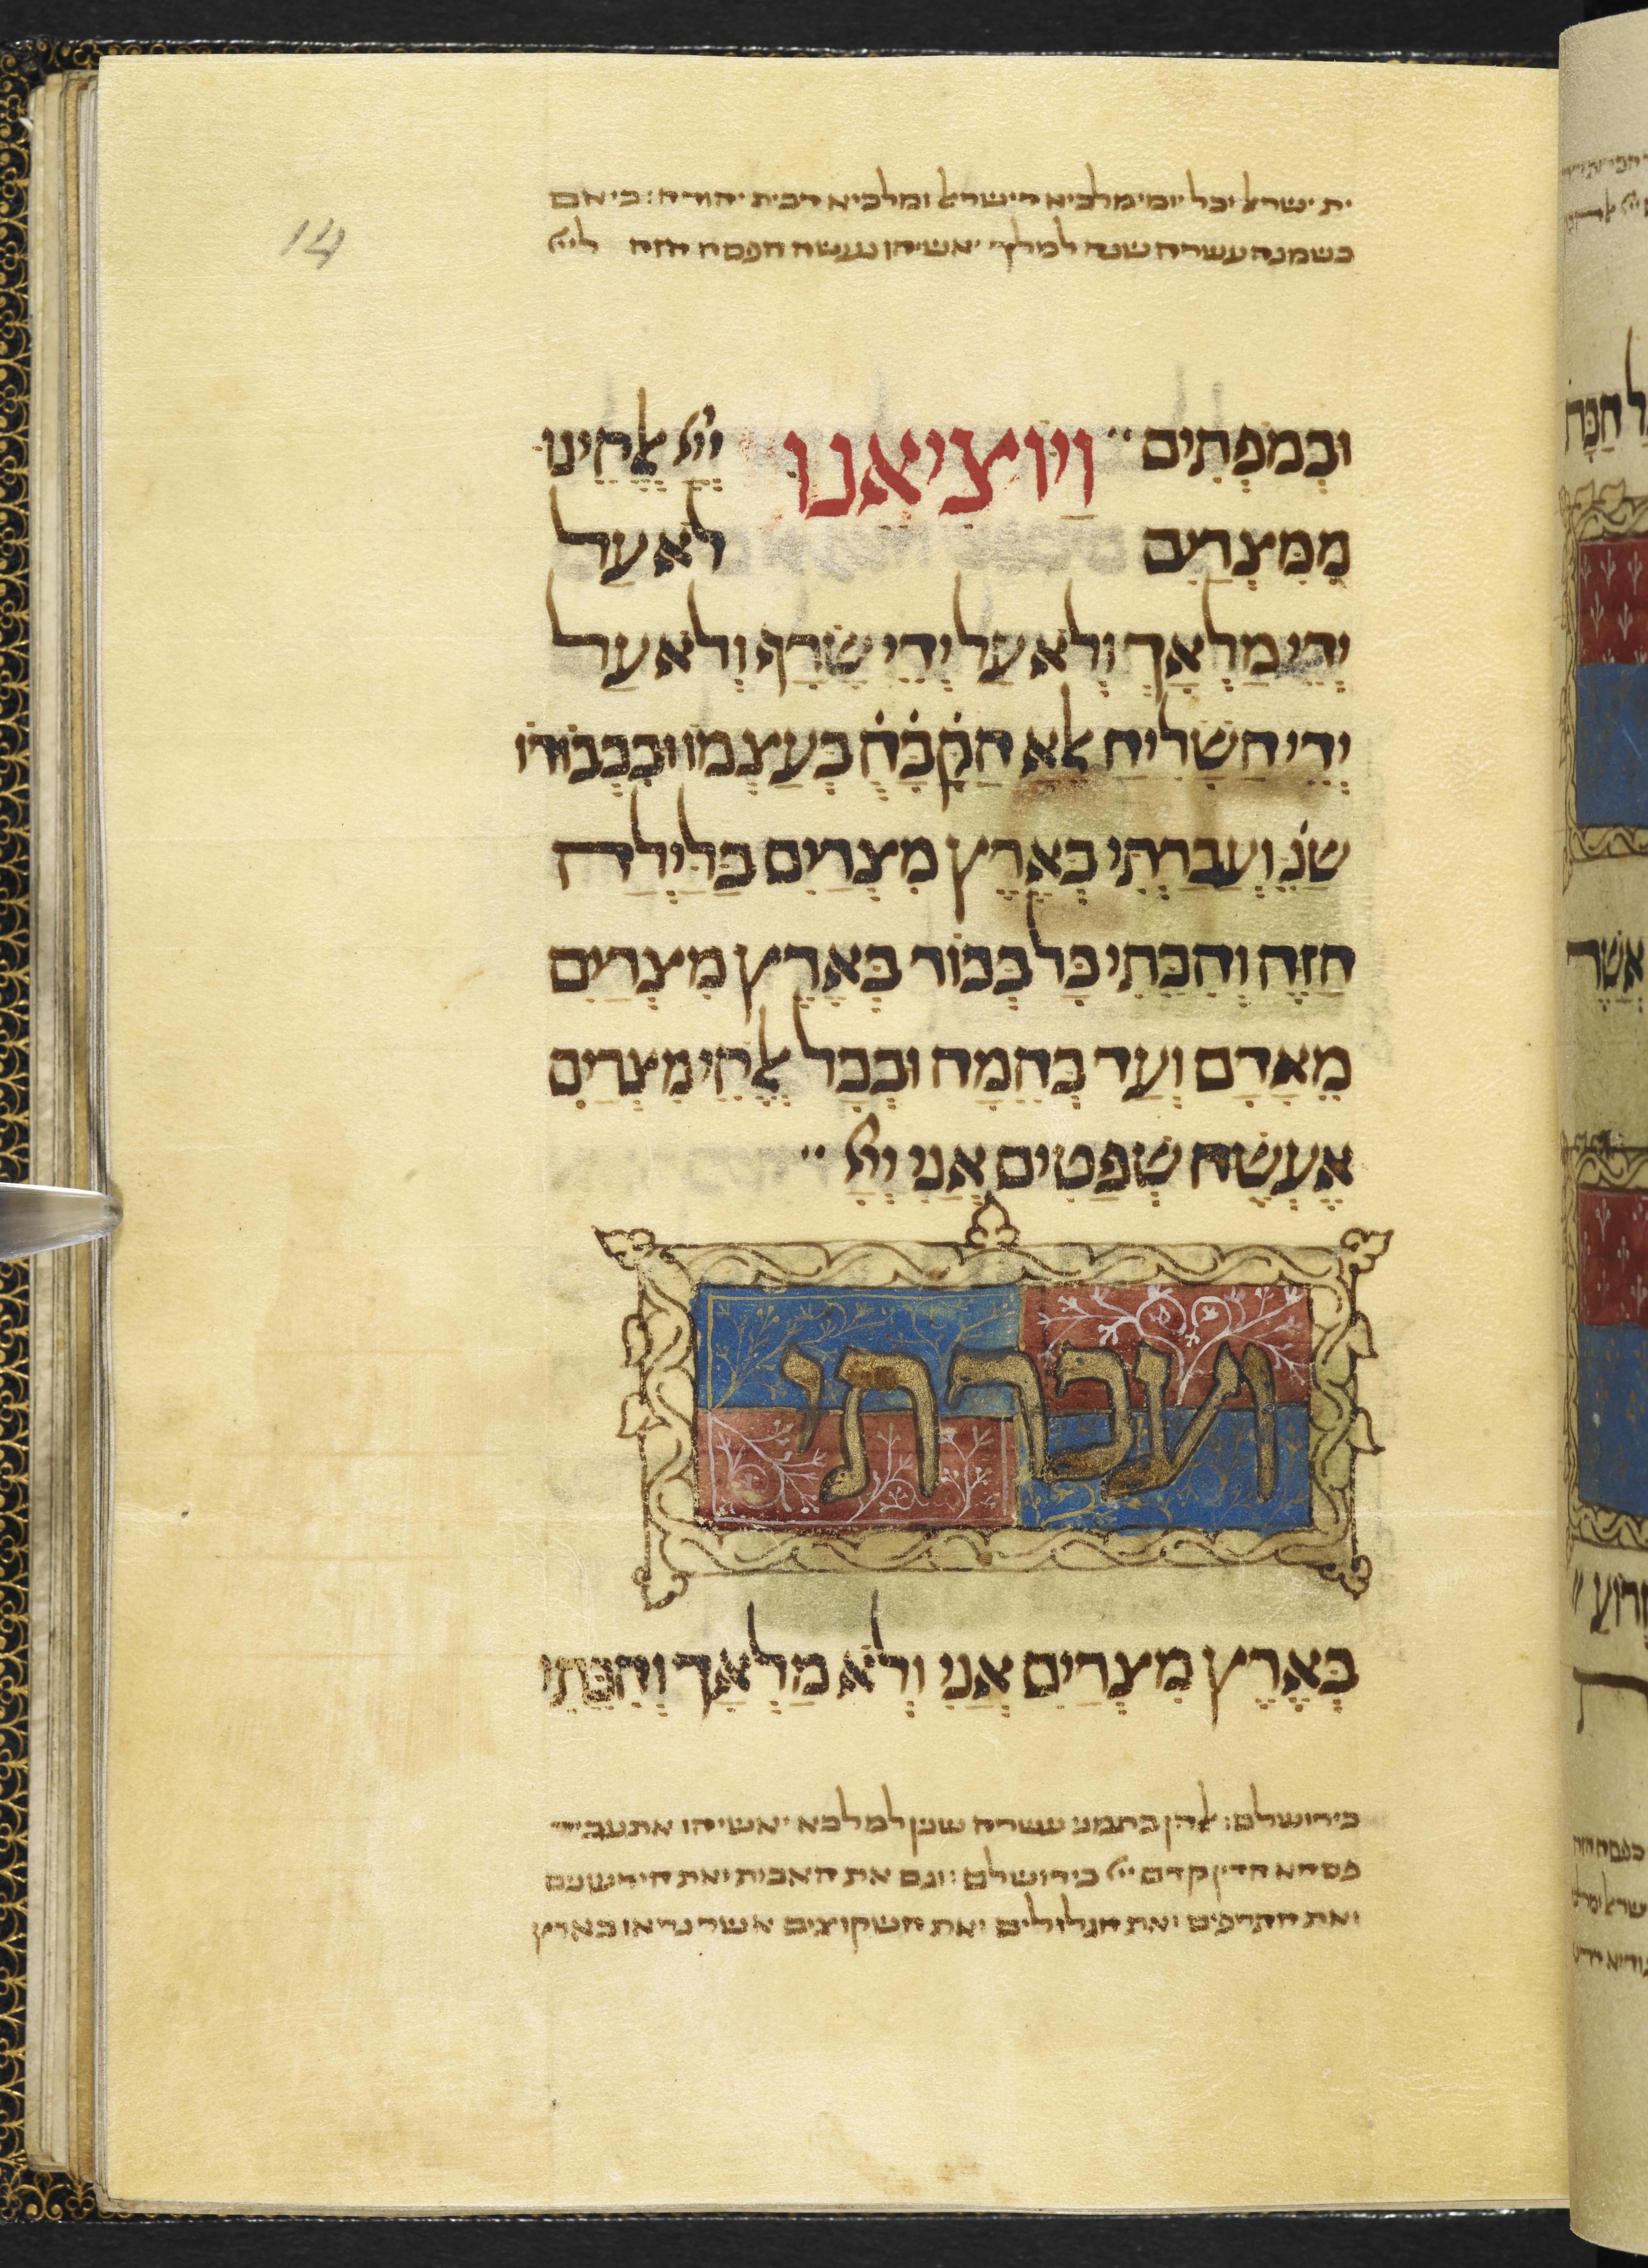 ית ישראל וכל יומי מלכיא דישראל ומלכיא דבית יהודה: כי אם
בשמנה עשרה שנה למלך יאשיהו נעשה הפסח הזה ליי
14
וּבְמֹפְתִים" וַיּוֹצִיאֵנוּ יְיָ אֱלֹהֵינוּ
מִמִּצְרַיִם לֹא עַל
יְדֵי מַלְאָךְ וְלֹא עַל יְדֵי שָׂרָף וְלֹא עַל
יְדֵי הַשָּׁלִיחַ אֶלָּא הַקָּבָּ֗ה֗ בְּעַצְמוֹ וּבִכְבוֹדוֹ
שֶׁנֶּ֗ וְעָבַרְתִּי בְאֶרֶץ מִצְרַיִם בַּלַּיְלָה
הַזֶּה וְהִכֵּתִי כָּל בְּכוֹר בְּאֶרֶץ מִצְרַיִם
מֵאָדָם וְעַד בְּהֵמָה וּבְכָל אֱלֹהֵי מִצְרַיִם
אֶעֱשֶׂה שְׁפָטִים אֲנִי יְיָ"
ועברתי
בְּאֶרֶץ מִצְרַיִם אֲנִי וְלֹא מַלְאָךְ וְהִכֵּתִי
בירושלם: אלהן בתמני עשרה שנין למלכא יאשיהו אתעביד
פסחא הדין קדם יי בירושלם: וגם את האבות ואת הידענים
ואת התרפים ואת הגלולים ואת השקוצים אשר נראו בארץ